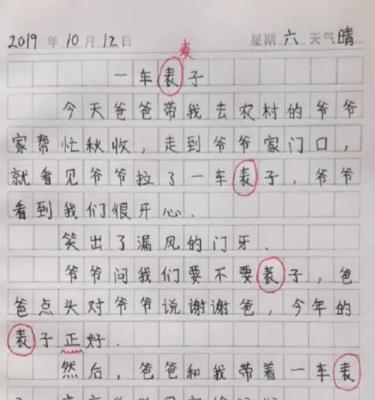 2019年10月12日 星期六 天气晴
麦
一车表子
今天爸爸带我去农村的爷爷
家帮忙秋收，走到爷爷家门口，
就看见爷爷拉了一车表子，爷爷
看到我们很开心.
笑出了漏风的门牙.
爷爷问我们要不要表子，爸
爸点头对爷爷说谢谢爸，今年的
表子正好.
然后，爸爸和我带着一车表